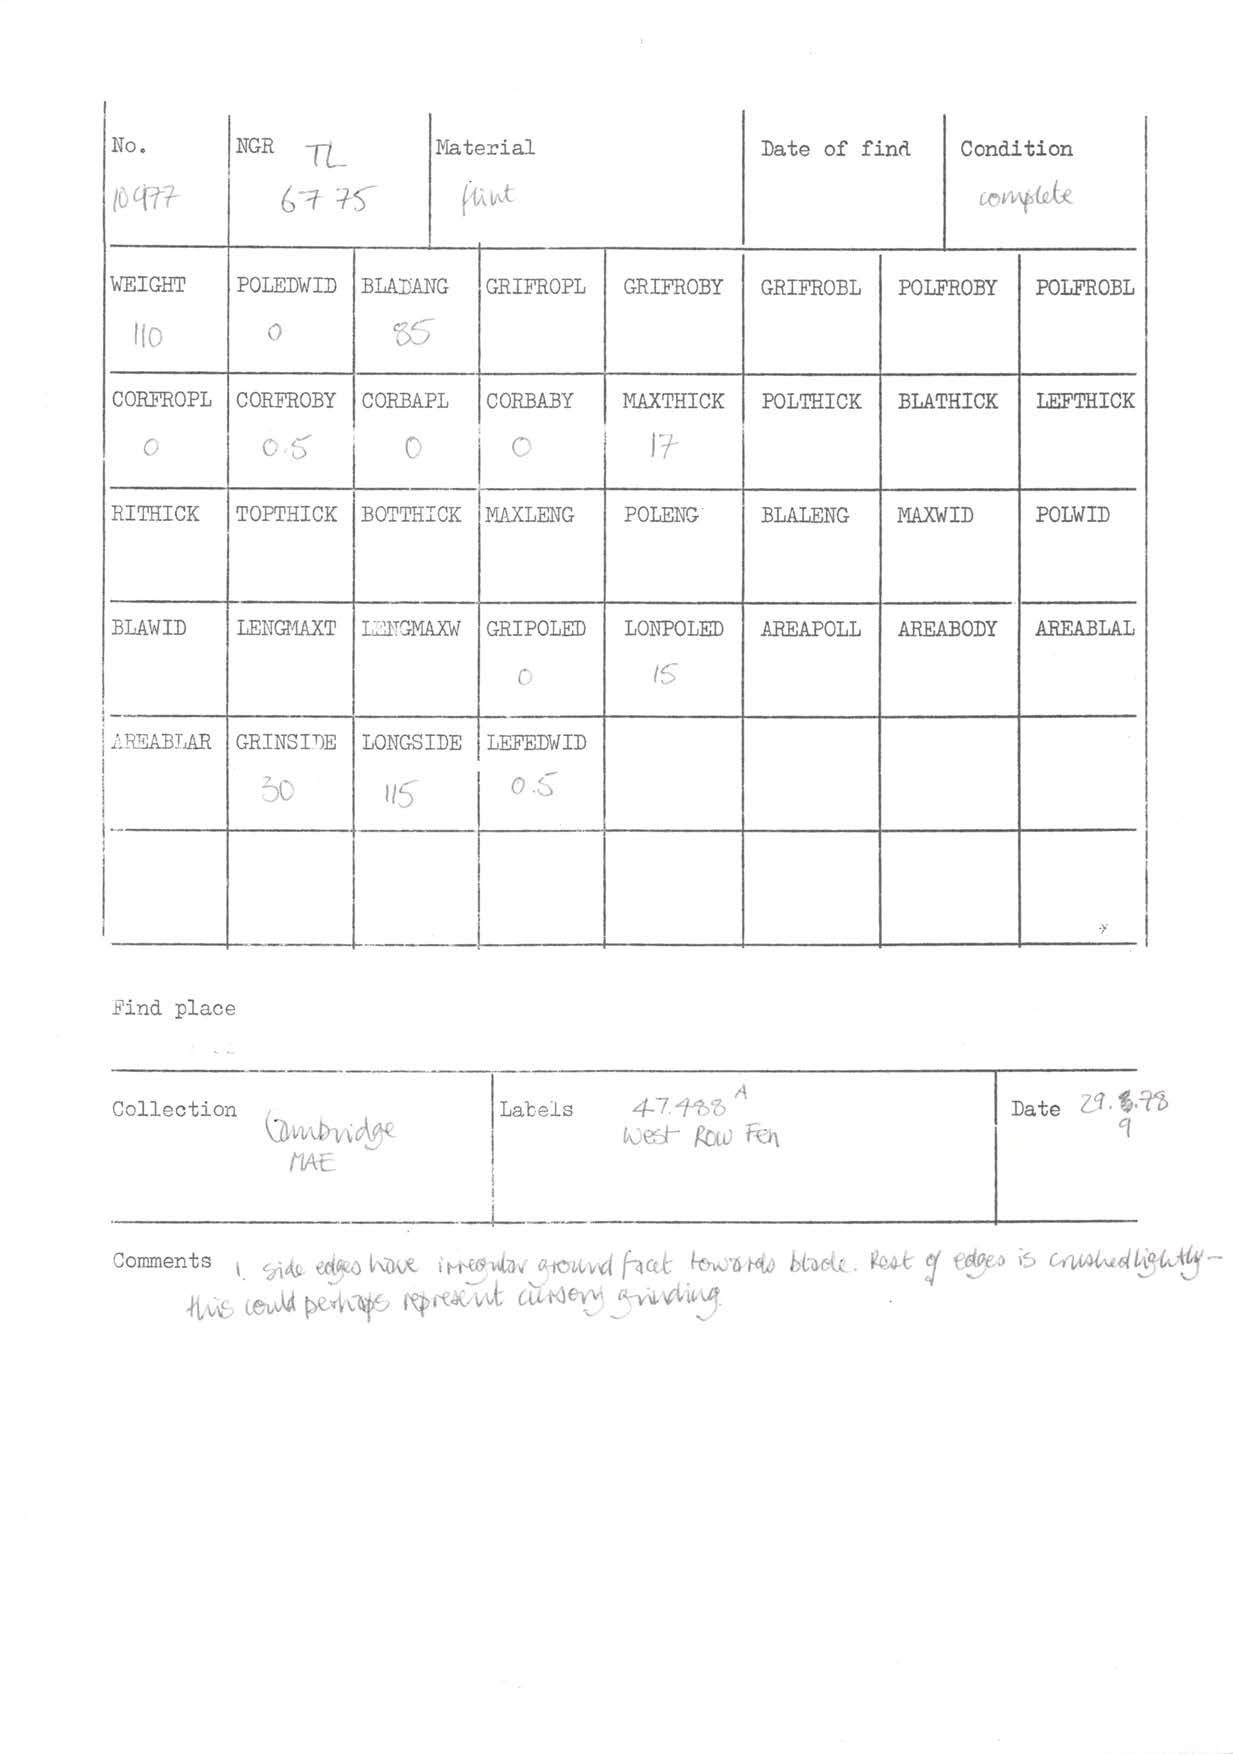 No. NGR TL Material Date of find Condition
10977 67 75 flint complete
WEIGHT POLEDWID BLADANG GRIFROPL GRIFROBY GRIFROBL POLFROBY POLFROBL
110 0 85
CORFROPL CORFROBY CORBAPL CORBABY MAXTHICK POLTHICK BLATHICK LEFTHICK
0 0.5 0 0 17
RITHICK TOPTHICK BOTTHICK MAXLENG POLENG BLALENG MAXWID POLWID
BLAWID LENGMAXT LENGMAXW GRIPOLED LONPOLED AREAPOLL AREABODY AREABLAL
0 15
AREABLAR GRINSIDE LONGSIDE LEFEDWID
30 115 0.5
Find place
Collection Cambridge
MAE
Labels 47.488 A
West Row Fen
Date 29.8.78
9
Comments 1. side edges have irregular ground facet towards blade. Rest of edges is crushed lightly –
this could perhaps represent cursory grinding.